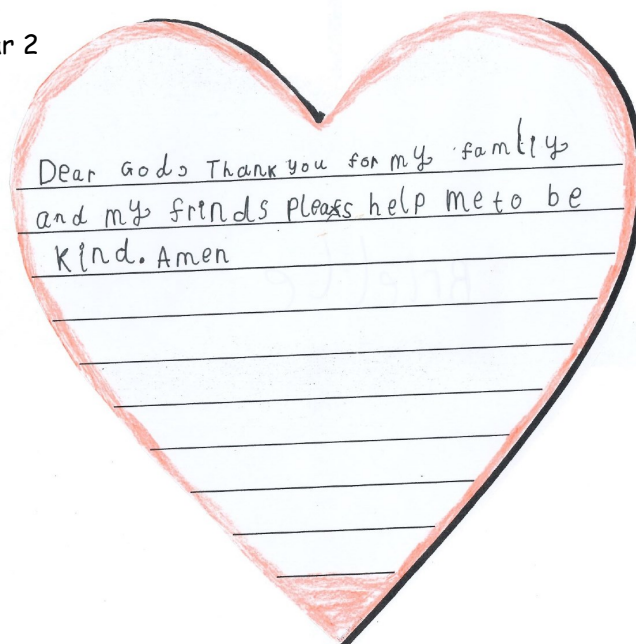 ar 2
Dear God, Thank you for my family
and my frinds pleass help me to be
kind. Amen